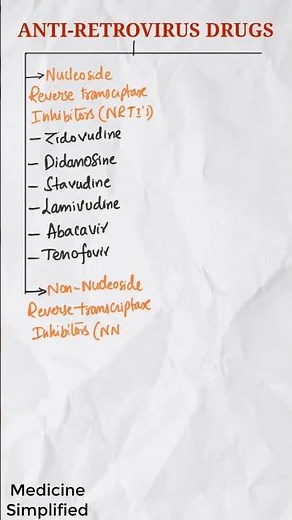 ANTI-RETROVIRUS DRUGS
Nucleoside
Reverse transciptase
Inhibitors (NRTI's)
- Zidovudine
- Didanosine
- Stavudine
- Lamivudine
- Abacavir
- Tenofovir
Non-Nucleoside
Reverse-transcriptase
Inhibitors (NN
Medicine
Simplified